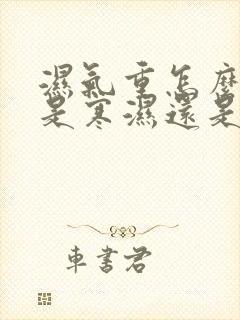 濕氣重怎麼
是寒濕還是
車書君